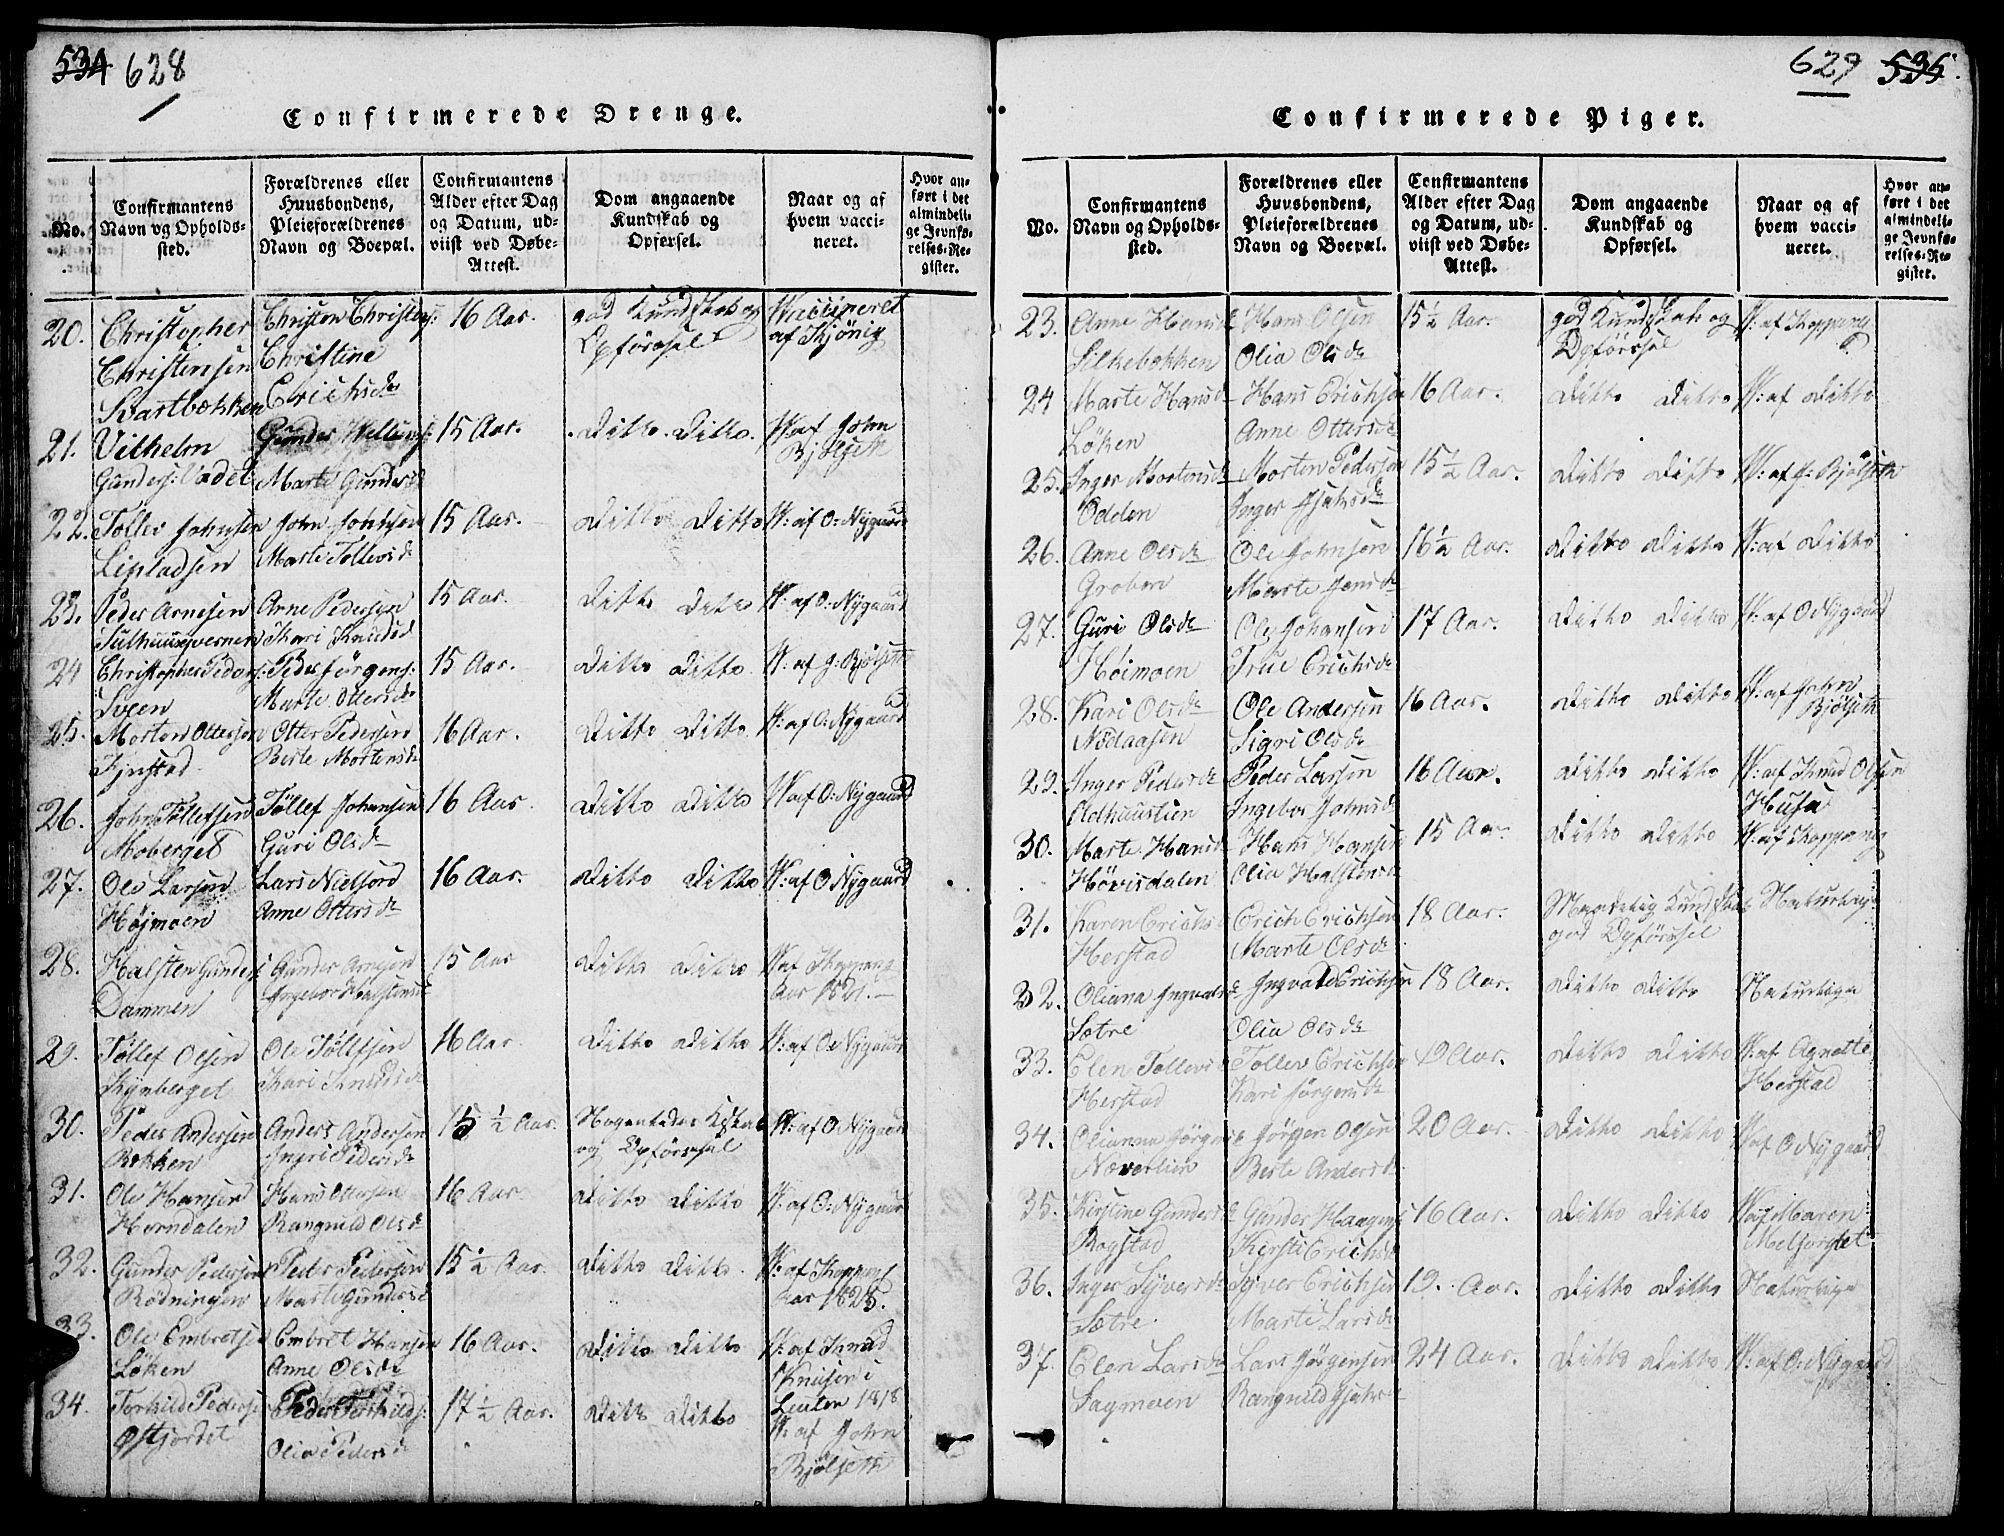 534 628
Confirmerede Drenge.
No.
Confirmantens Navn og Opholdssted.
Forældrenes eller Huusbondens, Pleieforældrenes Navn og Boepæl.
Confirmantens Alder efter Dag og Datum, udviist ved Døbe-Attest.
Dom angaaende Kundskab og Opførsel.
Naar og af hvem vaccineret.
Hvor anført i det almindelige Jevnførelses-Register.
20. Christopher Christen Christens: 16 Aar. god Kundskab og Vaccineret
Christensen Christine Opførssel af Skjönig
Svartbækken Erichsdr
21. Vilhelm Gunder Willums: 15 Aar. Ditto. Ditto. V: af John
Gunders: Vadet Marte Gundersd Bjölseth
22. Tollev Johnsen John Johnsen 15 Aar. Ditto Ditto V: af O: Nygaard
Marte Tollevsdr
23. Peder Arnesen Arne Pedersen 15 Aar. Ditto Ditto V: af O: Nygaard
Kari Knudsd
24 Christopher Peders: Peder Jörgens: 15 Aar. Ditto Ditto V: af J: Bjölseth
Sveen Marte Ottersdr
25. Morten Ottersen Otter Pedersen 16 Aar. Ditto Ditto V: af O: Nygaard
Berte Mortensdr
26. John Tollefsen Töllef Johansen 16 Aar. Ditto Ditto V: af O: Nygaard
Moberget Guri Olsdr
27. Ole Larsen Lars Nielsen 16 Aar. Ditto Ditto V: af O: Nygaard
Höjmoen Anne Ottersdr
28. Halsten Gunders: Gunder Arnesen 15 Aar Ditto Ditto V: af Koppang
Dammen Ingebor Halstensd Aar 1821.
29. Töllef Olsen Ole Töllefsen 16 Aar. Ditto Ditto V: af O: Nygaard
Rynberget Kari Knudsdr
30. Peder Andersen Anders Andersen 15 ½ Aar. Nogenledes Kskab V: af O: Nygaard
Bekken Ingri Pedersdr og Opførssel
31. Ole Hansen Hans Ottersen 16 Aar Ditto Ditto V: af O: Nygaard
Horndalen Rangnild Olsdr
32. Gunder Pedersen Peder Pedersen 15 ½ Aar. Ditto Ditto. V: af Koppang
Rödningen Marte Gundersd Aar 1825.
33. Ole Embretsen Embret Hansen 16 Aar. Ditto Ditto V: af Knud
Löken Anne Olsdr Knudsen i
34. Torkild Peders: Peder Torkilds: 17 ½ Aar. Ditto Ditto Leuten 1818
Östjordet Olia Pedersd V: af John
Bjölseth
629 535.
Confirmerede Piger.
No.
Confirmantens Navn og Opholdssted.
Forældrenes eller Huusbondens, Pleieforældrenes Navn og Boepæl.
Confirmantens Alder efter Dag og Datum, udviist ved Døbe-Attest.
Dom angaaende Kundskab og Opførsel.
Naar og af hvem vaccineret.
Hvor anført i det almindelige Jevnførelses-Register.
23. Anne Hansd Hans Olsen 15 ½ Aar. god Kundskab og V: af Koppang
Silkebekken Olia Olsdr Opførssel
24 Marte Hansd Hans Erichsen 16 Aar. Ditto Ditto V: af Ditto
Löken Anne Ottersdr
25. Inger Mortensdr Morten Pedersen 15 ½ Aar. Ditto Ditto V: af J: Bjölseth
Odden Inger
26. Anne Olsdr Ole Johnsen 16 ½ Aar. Ditto Ditto V: af Ditto
Groben Marte Jensdr
27. Guri Olsdr Ole Johansen 17 Aar. Ditto Ditto V: af O Nygaard
Höimoen True Erichsdr
28. Kari Olsdr Ole Andersen 16 Aar. Ditto Ditto V: af John
Nödaasen Sigri Olsdr Bjölseth
29. Inger Pedersdr Peder Larsen 16 Aar. Ditto Ditto V: af Knud Olsen
Ingebor Johnsdr Husu
30. Marte Hansd Hans Hansen 15 Aar. Ditto Ditto V: af Koppang
Hövisdalen Olia Halstensd
31. Karen Erichsd Erich Erichsen 18 Aar. Maadelig Kundskab Naturlige
Herstad Marte Olsdr god Opførssel
32. Oliana Ingvaldsd Ingvald Erichsen 18 Aar. Ditto Ditto Naturlige
Sætre Olia Olsdr
33. Elen Tollevsd Tollev Erichsen 19 Aar. Ditto Ditto V: af Agnette
Herstad Kari Jörgensdr Herstad
34. Olianna Jörgensd Jörgen Olsen 20 Aar. Ditto Ditto V: af O Nygaard
Næverlien Berte Andersd
35. Kirstine Gundersd Gunder Haagens: 16 Aar. Ditto Ditto V: af Maren
Rogstad Kersti Erichsd
36. Inger Syversdr Syver Erichsen 19. Aar. Ditto Ditto Naturlige
Sætre. Marte Larsdr
37. Elen Larsdr Lars Jörgensen 24 Aar. Ditto Ditto V: af O: Nygaard
Sagmoen Rangnild